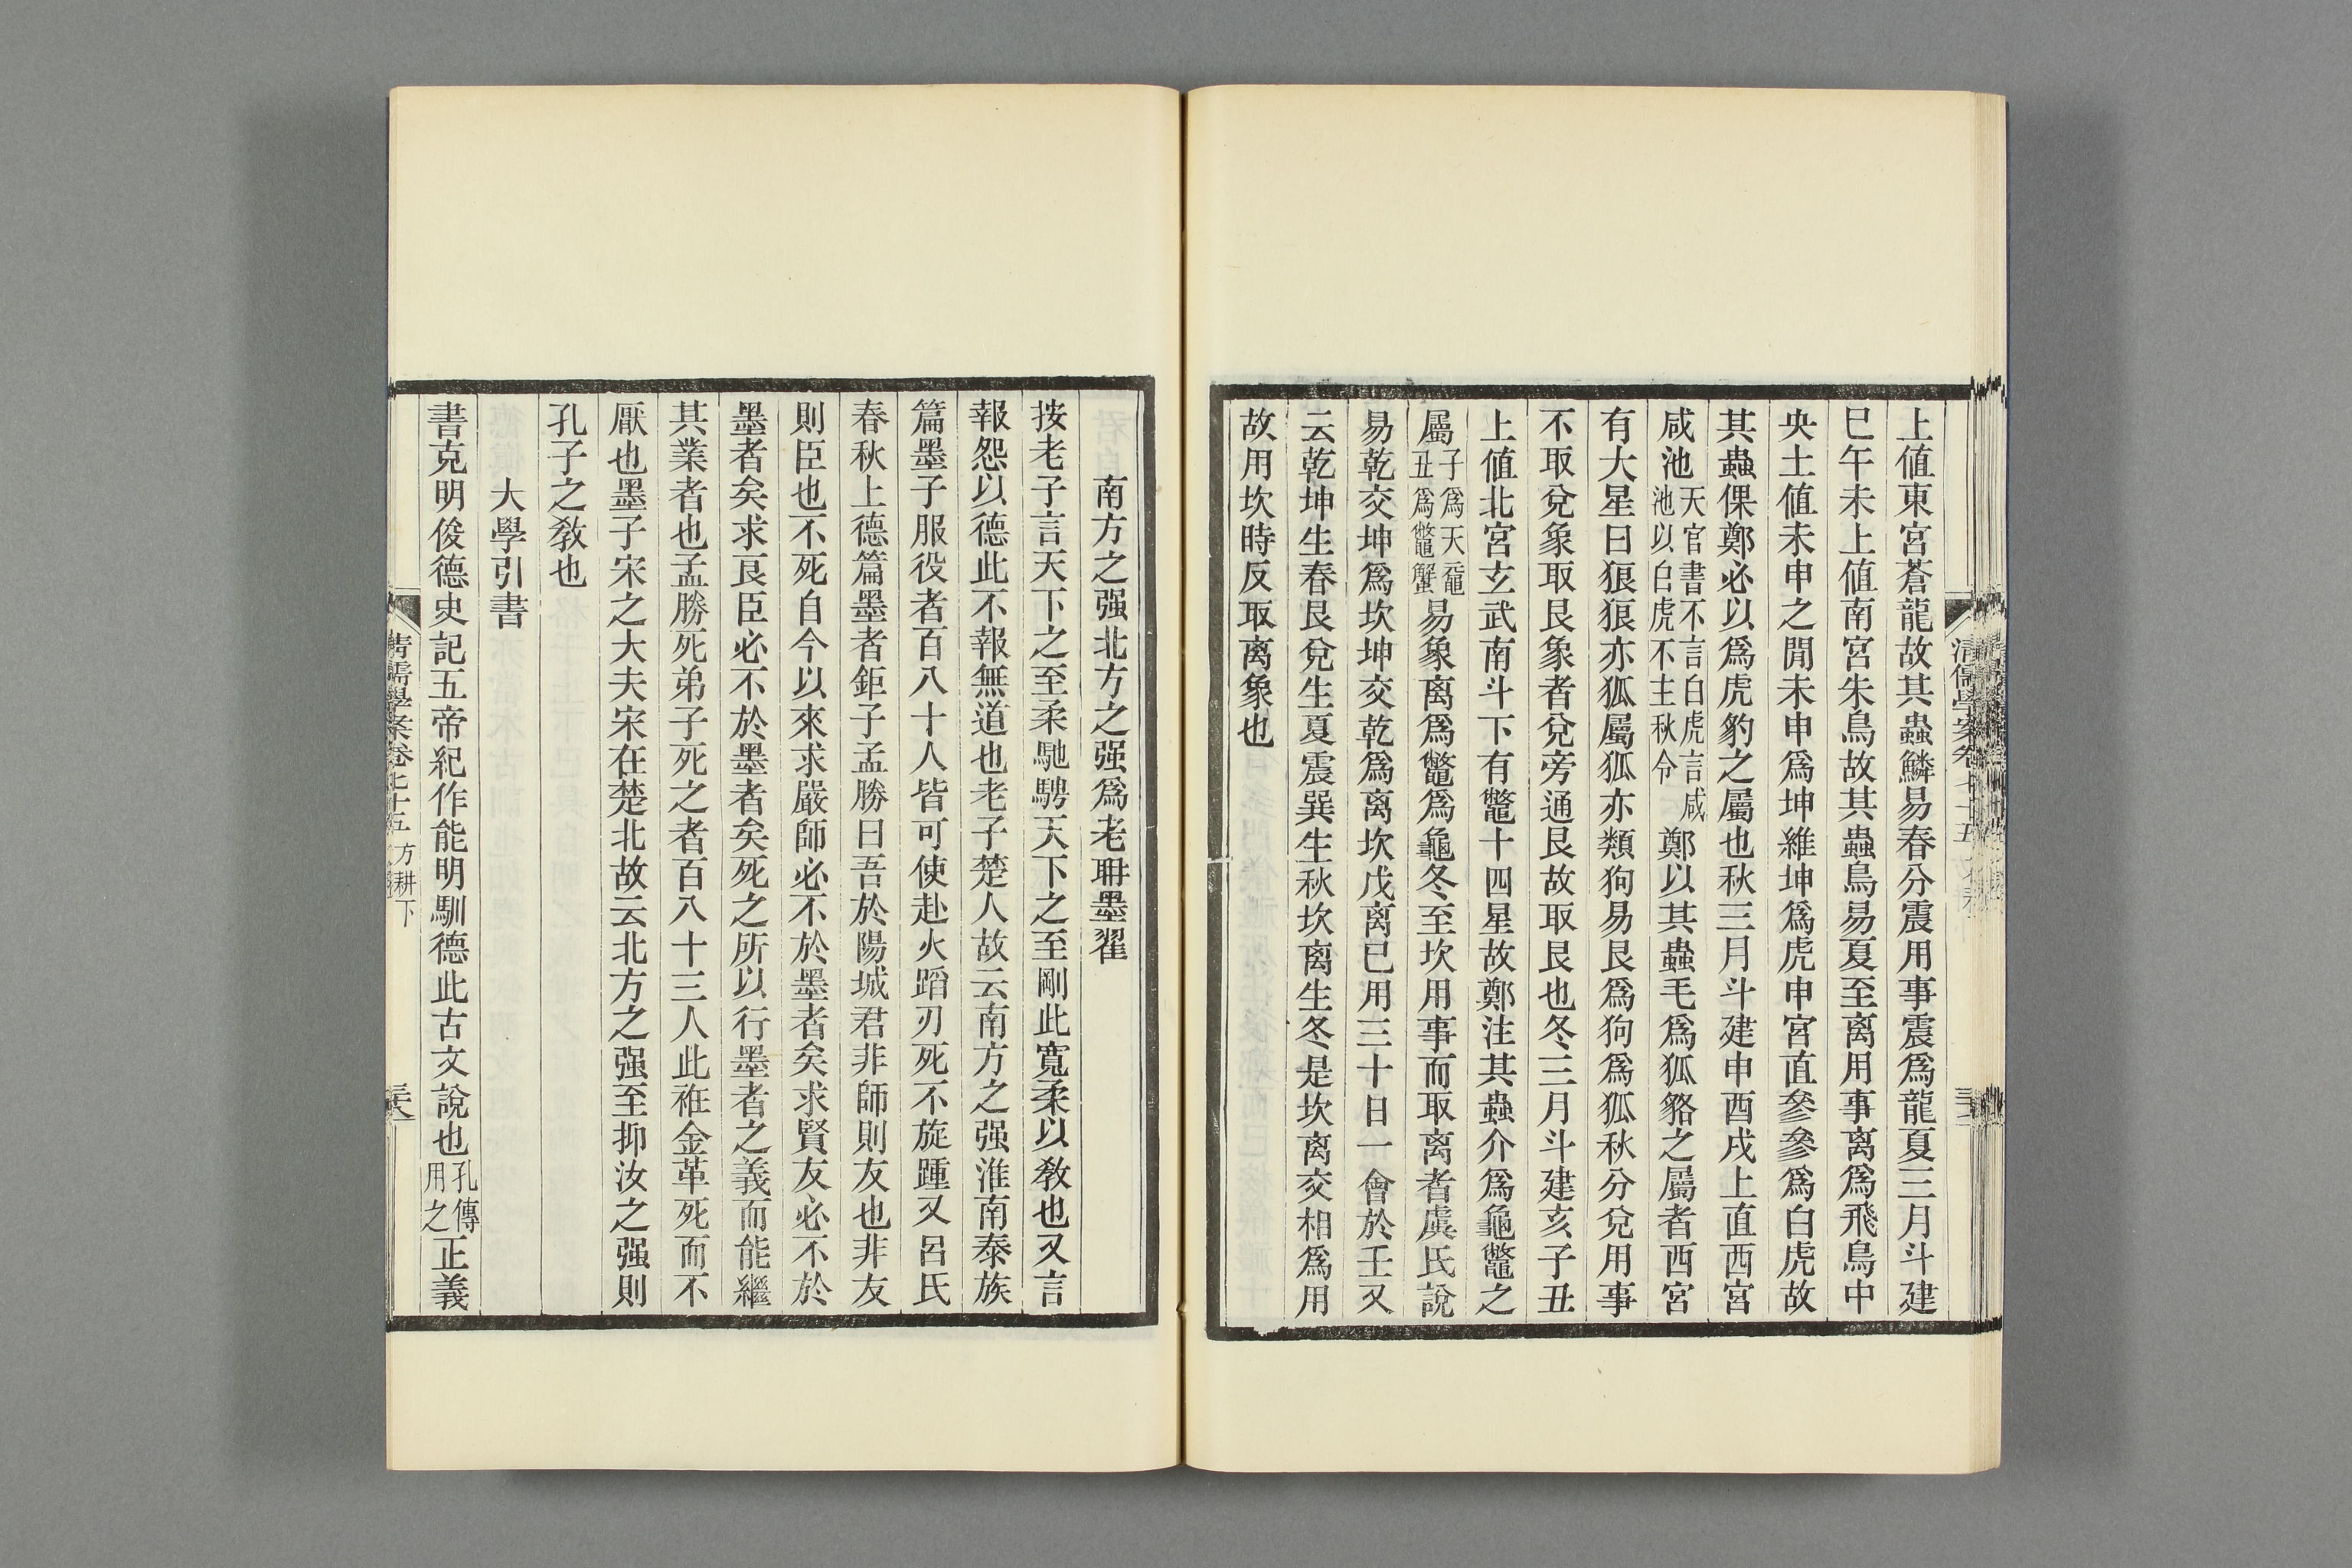 上值東宮蒼龍故其蟲鱗易春分震用事震爲龍夏三月斗建
巳午未上值南宮朱鳥故其蟲鳥易夏至离用事离爲飛鳥中
央土値未申之閒未申爲坤維坤爲虎申宮直參參爲白虎故
其蟲倮鄭必以爲虎豹之屬也秋三月斗建申酉戌上直西宮
咸池天官書不言白虎言咸池以白虎不主秋令鄭以其蟲毛爲狐貉之屬者西宮
有大星曰狼狼亦狐屬狐亦類狗易艮爲狗爲狐秋分兌用事
不取兌象取艮象者兌旁通艮故取艮也冬三月斗建亥子丑
上値北宮玄武南斗下有鼈十四星故鄭注其蟲介爲龜鼈之
屬子爲天黿丑爲鼈蟹易象离爲鼈爲龜冬至坎用事而取离者虞氏說
易乾交坤爲坎坤交乾爲离坎戊离已用三十日一會於壬又
云乾坤生春艮兌生夏震巽生秋坎离生冬是坎离交相爲用
故用坎時反取离象也
南方之强北方之强爲老耼墨翟
按老子言天下之至柔馳騁天下之至剛此寬柔以敎也又言
報怨以德此不報無道也老子楚人故云南方之强淮南泰族
篇墨子服役者百八十人皆可使赴火蹈刃死不旋踵又呂氏
春秋上德篇墨者鉅子孟勝曰吾於陽城君非師則友也非友
則臣也不死自今以來求嚴師必不於墨者矣求賢友必不於
墨者矣求良臣必不於墨者矣死之所以行墨者之義而能繼
其業者也孟勝死弟子死之者百八十三人此袵金革死而不
厭也墨子宋之大夫宋在楚北故云北方之强至抑汝之强則
孔子之敎也
大學引書
書克明俊德史記五帝紀作能明馴德此古文說也孔傳用之正義
清儒學案卷七十五 方耕下